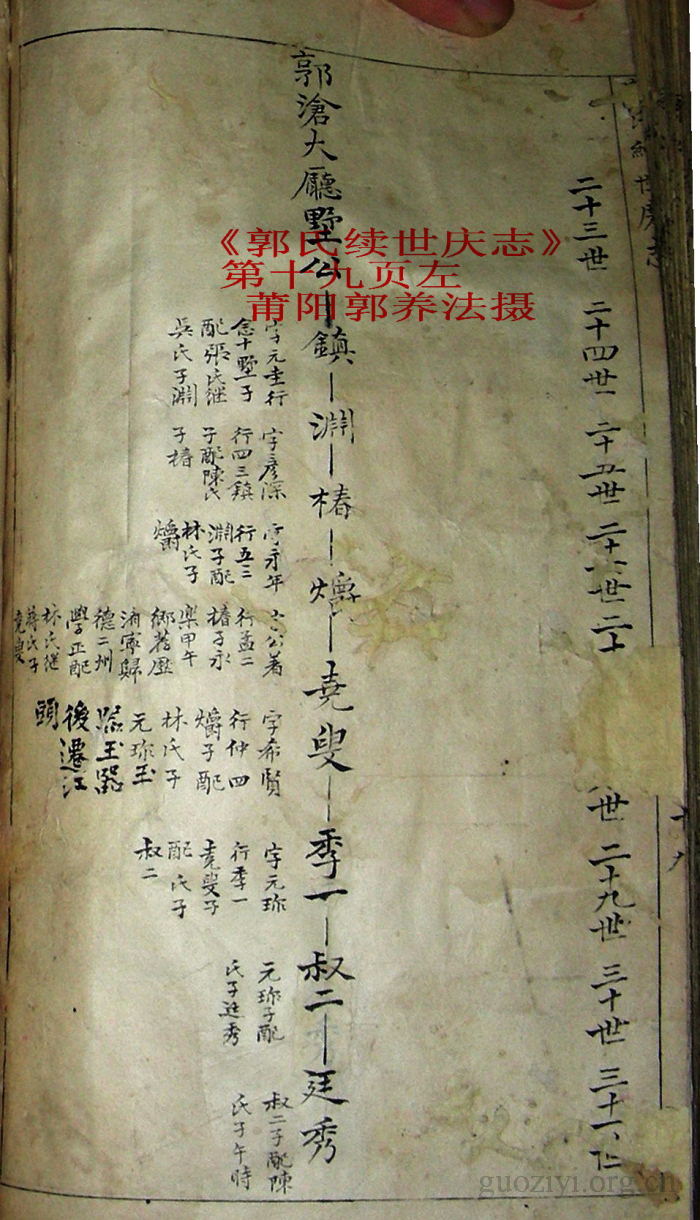 續世慶志
十九
二十三世 二十四世 二十五世 二十六世 二十
世 二十九世 三十世 三十一
郭滄大廳墅公—鎮—淵—椿—爝—堯叟—季一—叔二—廷秀
字元圭行
念十墅子
配張氏继
吳氏子淵
字彥深
行四三鎮
子配陳氏
子椿
字永年
行五三
淵子配
林氏子
爝
公著
行孟二
椿子永
樂甲午
鄉薦歷
濟寧歸
德二州
學正配
林氏継
蔣氏子
堯叟
字希賢
行仲四
爝子配
林氏子
元珎玉
器玉器
後遷江
頭
字元珎
行季一
堯叟子
配 氏子
叔二
元珎子配
氏子廷秀
叔二子配陳
氏子午時
《郭氏续世庆志》
第十九页左
莆阳郭养法摄
guoziyi.org.cn